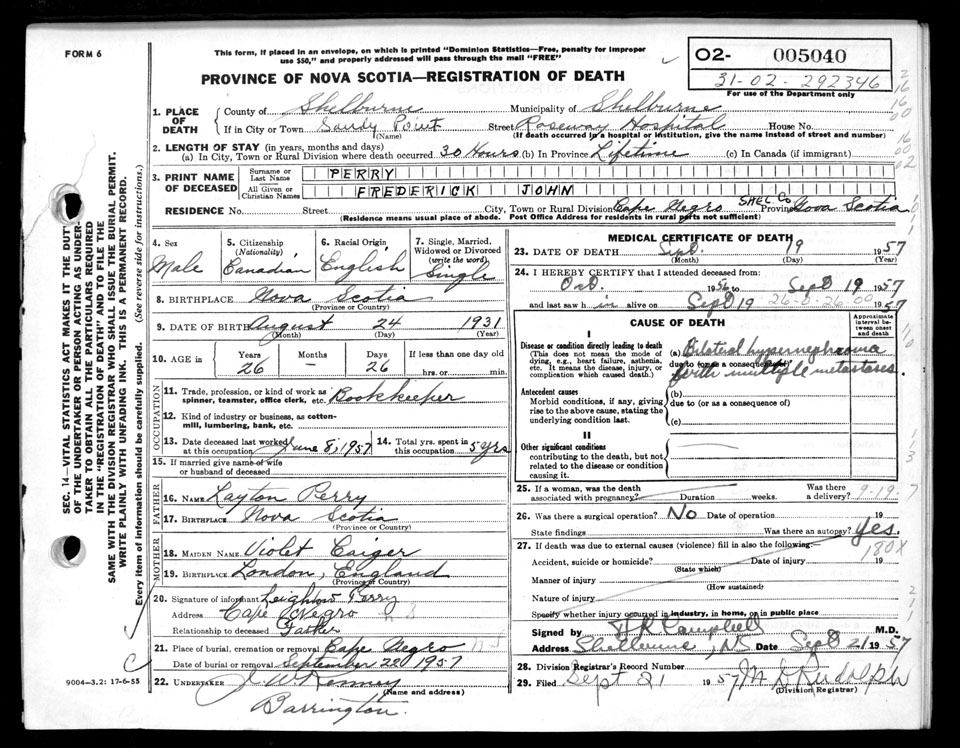 FORM 6
This form, if placed in an envelope, on which is printed "Dominion Statistics—Free, penalty for improper
use $50," and properly addressed will pass through the mail "FREE"
PROVINCE OF NOVA SCOTIA—REGISTRATION OF DEATH
02- 005040
31-02-292346
For use of the Department only
1. PLACE OF DEATH
County of Shelburne Municipality of Shelburne
If in City or Town Sandy Point Street Roseway Hospital House No.
(Name) (If death occurred in a hospital or institution, give the name instead of street and number)
2. LENGTH OF STAY (in years, months and days)
(a) In City, Town or Rural Division where death occurred 30 Hours (b) In Province Lifetime (c) In Canada (if immigrant)
3. PRINT NAME OF DECEASED
Surname or Last Name PERRY
All Given or Christian Names FREDERICK JOHN
RESIDENCE No. Street City, Town or Rural Division Cape Negro SHEL. Co Province Nova Scotia
(Residence means usual place of abode. Post Office Address for residents in rural parts not sufficient)
4. Sex Male
5. Citizenship (Nationality) Canadian
6. Racial Origin English
7. Single, Married, Widowed or Divorced (write the word) Single
8. BIRTHPLACE Nova Scotia
(Province or Country)
9. DATE OF BIRTH August 24 1931
(Month) (Day) (Year)
10. AGE in Years 26 Months – Days 26 If less than one day old
hrs. or min.
OCCUPATION
11. Trade, profession, or kind of work as spinner, teamster, office clerk, etc. Bookkeeper
12. Kind of industry or business, as cotton-mill, lumbering, bank, etc.
13. Date deceased last worked at this occupation June 8, 1957 14. Total yrs. spent in this occupation 5 yrs
15. If married give name of wife or husband of deceased
FATHER
16. NAME Layton Perry
17. BIRTHPLACE Nova Scotia
(Province or Country)
MOTHER
18. MAIDEN NAME Violet Caiger
19. BIRTHPLACE London, England
(Province or Country)
20. Signature of informant Leighton Perry
Address Cape Negro
Relationship to deceased Father
21. Place of burial, cremation or removal Cape Negro
Date of burial or removal September 22 1957
22. UNDERTAKER J. W. Kenney
(Name and address)
Barrington.
9004—3.2: 17-6-55
MEDICAL CERTIFICATE OF DEATH
23. DATE OF DEATH Sept. 19 1957
(Month) (Day) (Year)
24. I HEREBY CERTIFY that I attended deceased from:
Oct. 1956 to Sept 19 1957
and last saw h im alive on Sept 19 1957
26-0-26-00
CAUSE OF DEATH
Approximate interval between onset and death
I
Disease or condition directly leading to death
(This does not mean the mode of dying, e.g., heart failure, asthenia, etc. It means the disease, injury, or complication which caused death.)
(a) Bilateral hypernephroma
due to (or as a consequence of)
with multiple metastases.
Antecedent causes
Morbid conditions, if any, giving rise to the above cause, stating the underlying condition last.
(b)
due to (or as a consequence of)
(c)
II
Other significant conditions
contributing to the death, but not related to the disease or condition causing it.
25. If a woman, was the death associated with pregnancy? Duration weeks. Was there a delivery?
9-19-7
26. Was there a surgical operation? No Date of operation 19
State findings Was there an autopsy? Yes.
27. If death was due to external causes (violence) fill in also the following:
180X
Accident, suicide or homicide? Date of injury 19
(State which)
Manner of injury
(How sustained)
Nature of injury
Specify whether injury occurred in industry, in home, or in public place
Signed by H R Campbell M.D.
Address Shelburne, NS Date Sept 21 1957
28. Division Registrar's Record Number
29. Filed Sept 21 1957 M D Rudolph
(Division Registrar)
SEC. 14—VITAL STATISTICS ACT MAKES IT THE DUTY
OF THE UNDERTAKER OR PERSON ACTING AS UNDER-
TAKER TO OBTAIN ALL THE PARTICULARS REQUIRED
IN THE "REGISTRATION OF DEATH" AND TO FILE THE
SAME WITH THE DIVISION REGISTRAR WHO SHALL ISSUE THE BURIAL PERMIT.
WRITE PLAINLY WITH UNFADING INK. THIS IS A PERMANENT RECORD.
Every item of information should be carefully supplied. (See reverse side for instructions.)